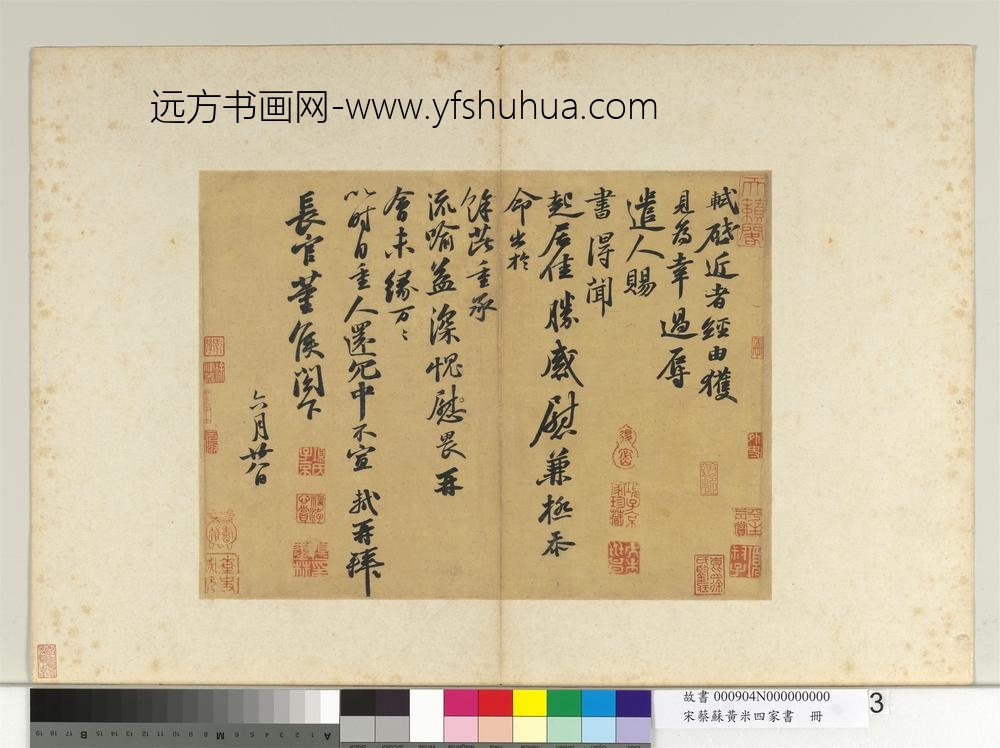 远方书画网-www.yfshuhua.com
軾啟近者經由獲
見為幸過辱
遣人賜
書得聞
起居佳勝感慰兼極忝
命出於
餘芘重承
流喻益深愧慰畏再
會未緣万〻
以時自重人還冗中不宣 軾再拜
長官董侯閣下
六月廿八日
故書 000904N000000000
宋蔡蘇黃米四家書 冊
3